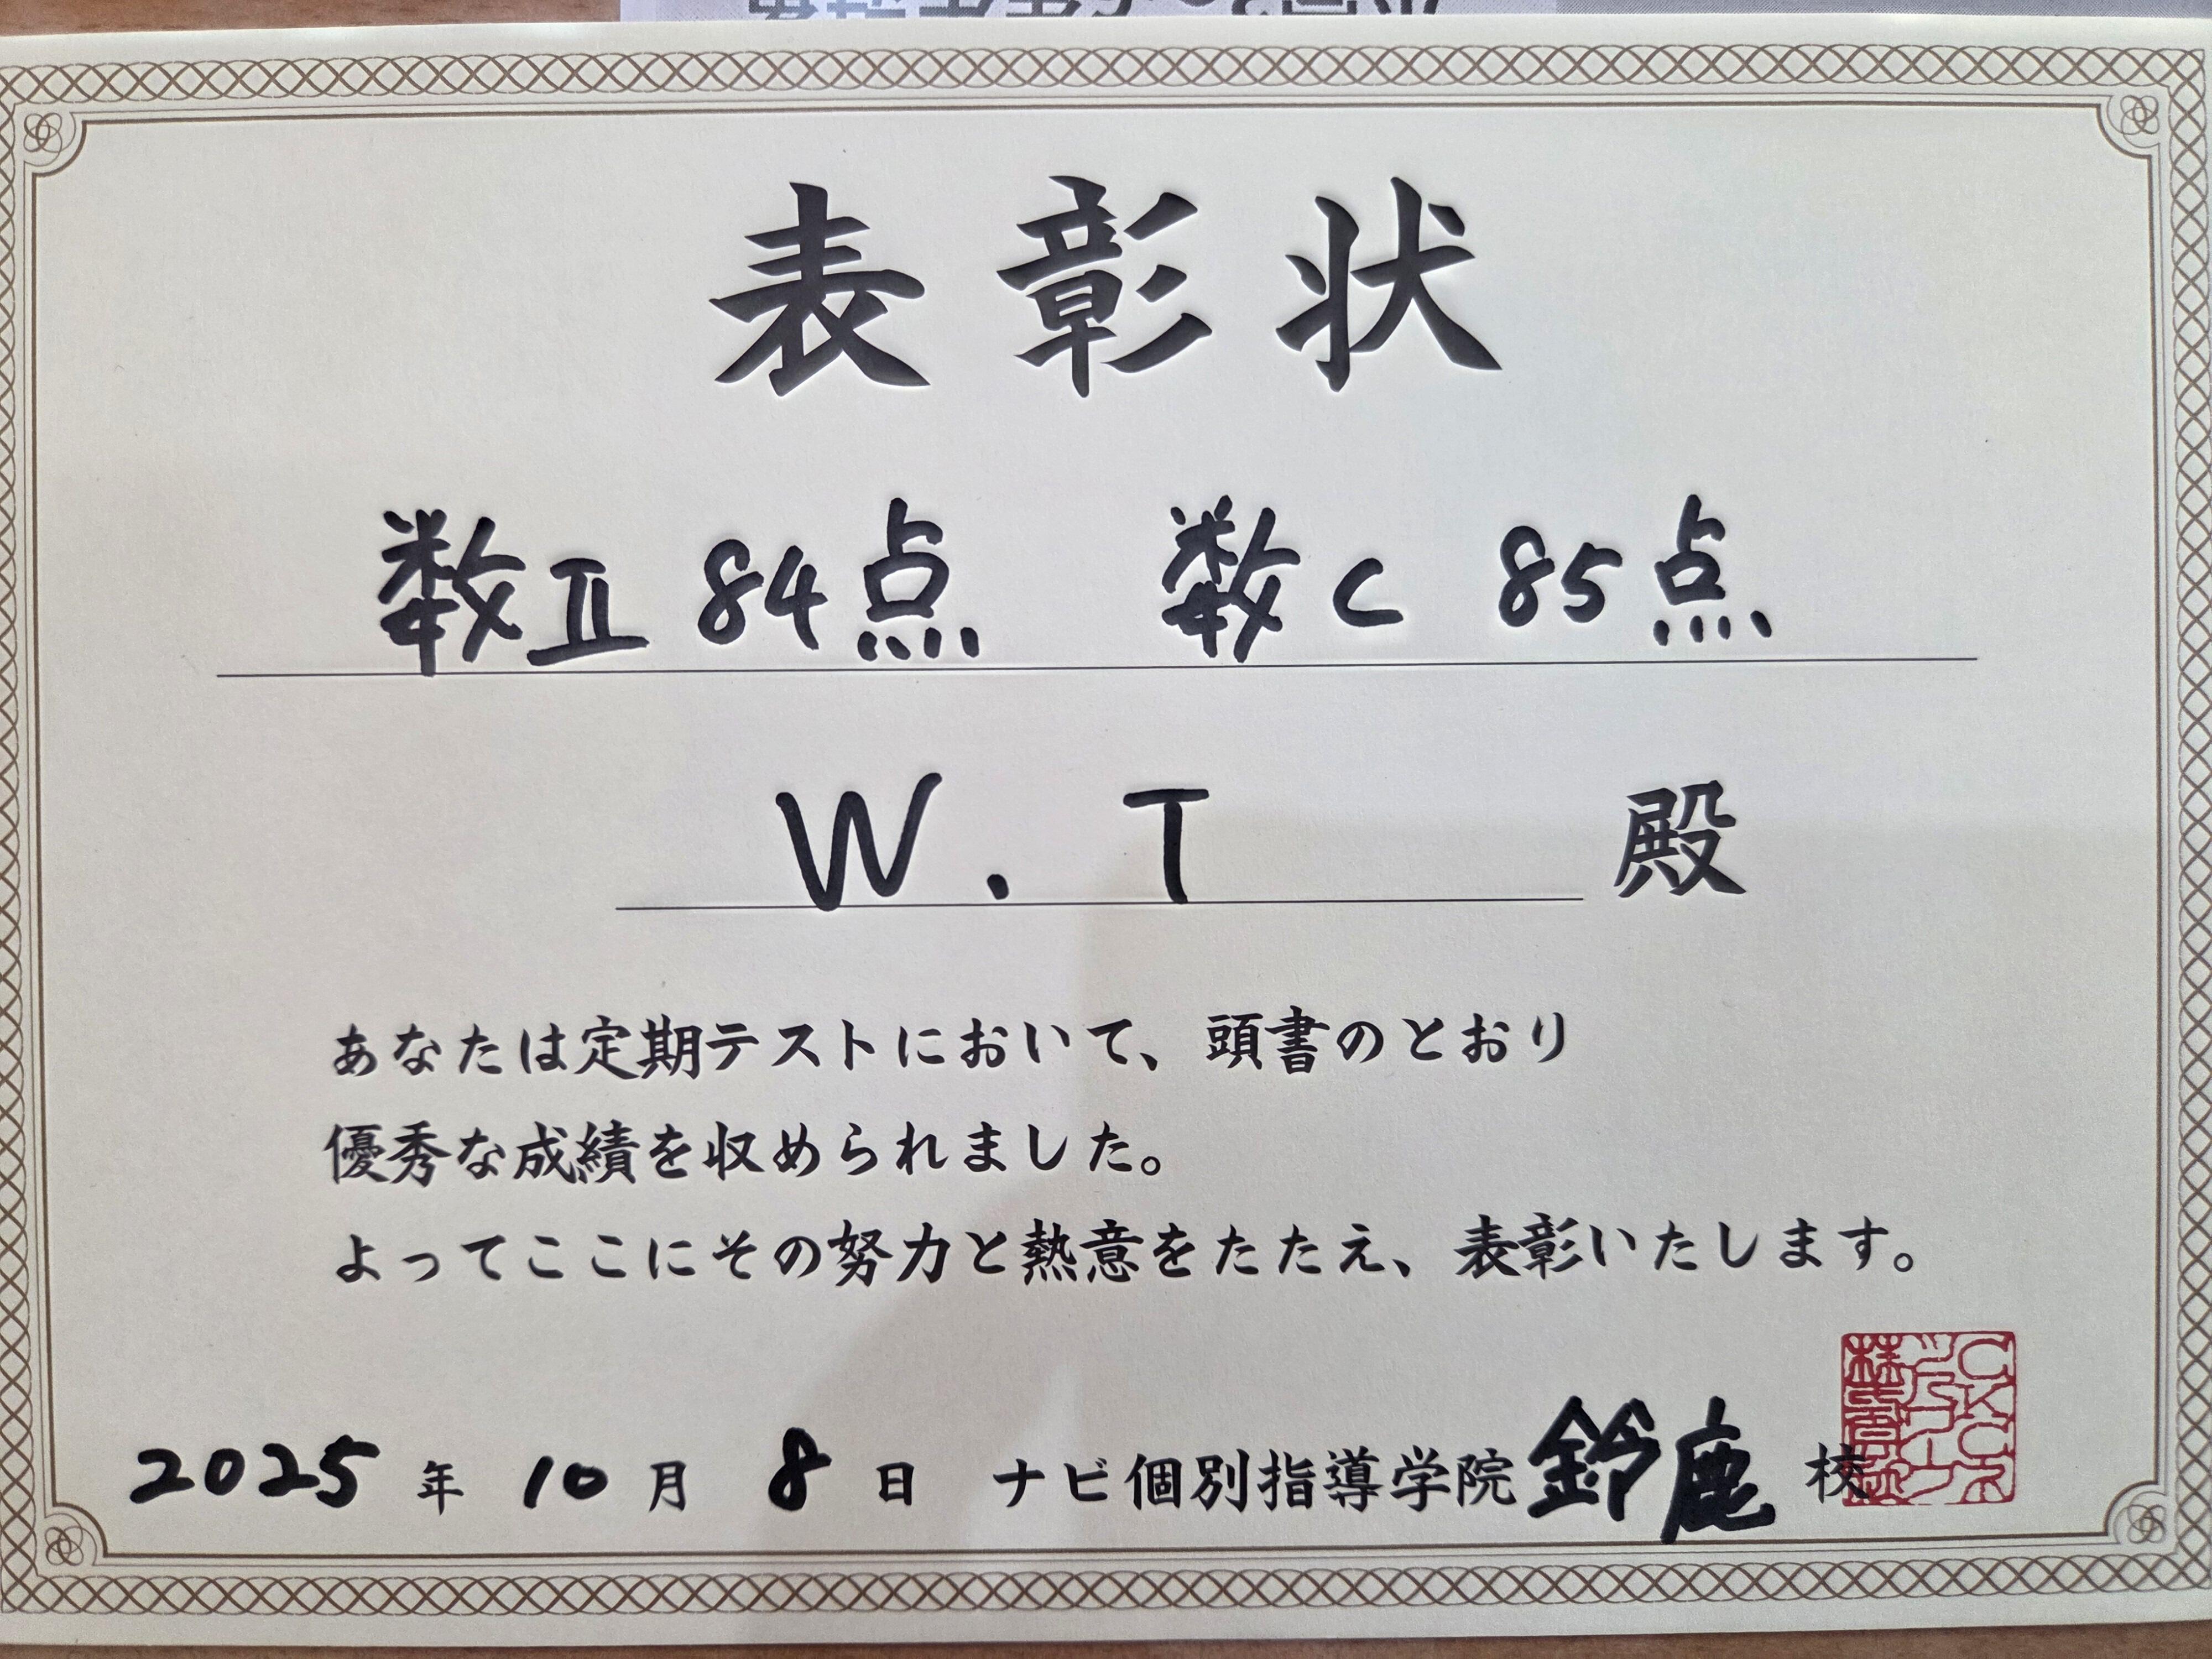 表彰状
数Ⅱ 84点 数C 85点
W. T 殿
あなたは定期テストにおいて、頭書のとおり
優秀な成績を収められました。
よってここにその努力と熱意をたたえ、表彰いたします。
2025年10月8日 ナビ個別指導学院 鈴鹿 校